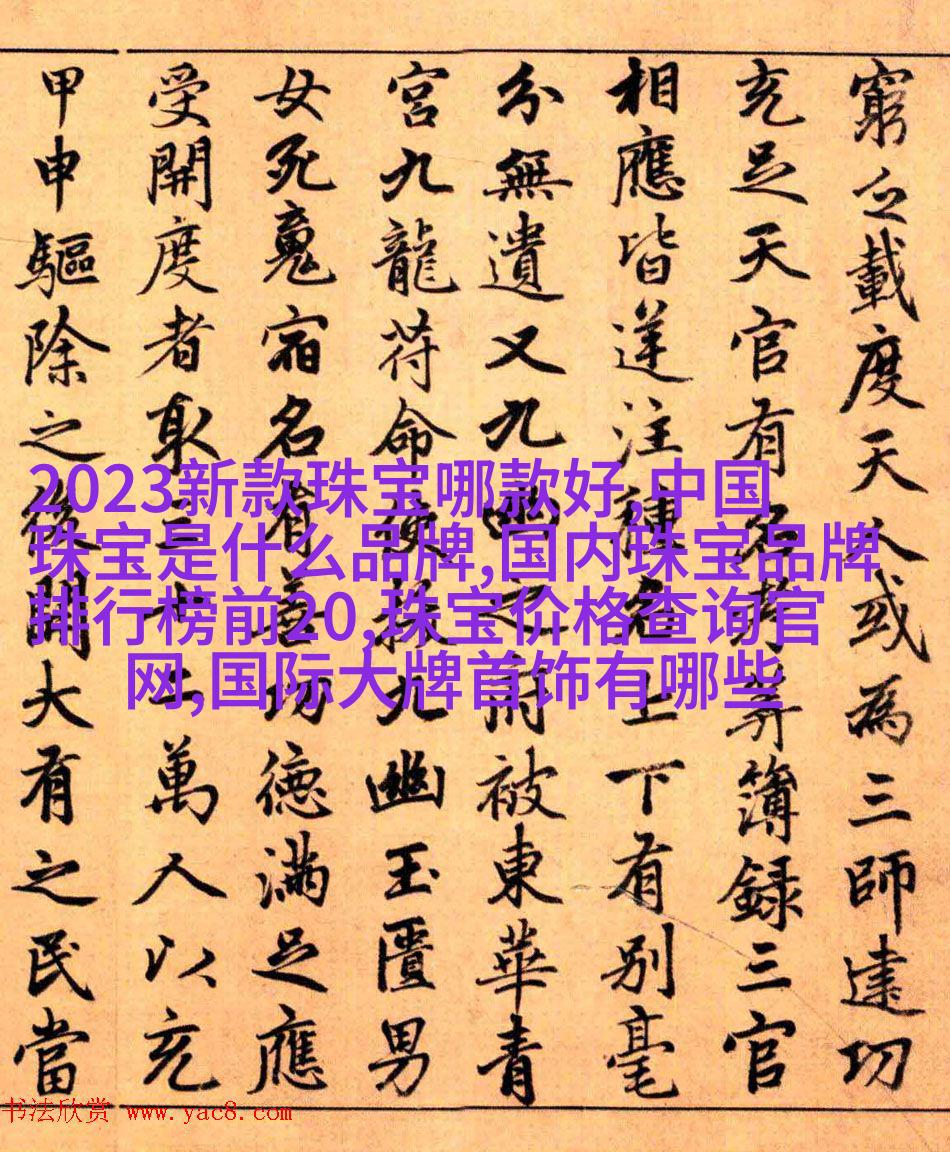 窮之載度天人或為三師建功
充足天官有名考算簿錄三官
相應皆逆注種名上下有別毫
分無遺又九幽之前被東華青
宮九龍符命使拔九幽玉匱男
女死魂宿名有善功德滿足應
受開度者取三十二萬人以充
甲申驅除之後開大有之民當
2023新款珠宝哪款好,中国
珠宝是什么品牌,国内珠宝品牌
排行榜前20,珠宝价格查询官
网,国际大牌首饰有哪些
书法欣赏 www.yac8.com